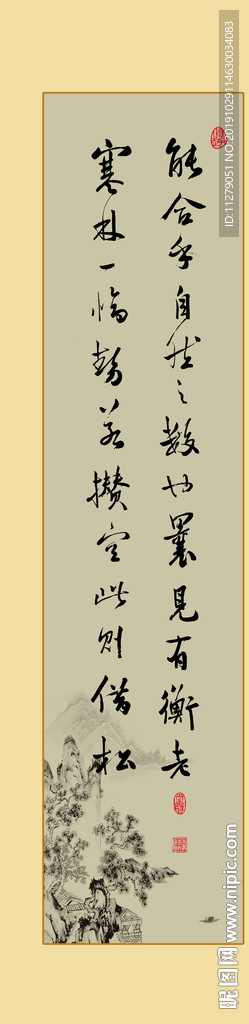 能合乎自然之数也曩见有衡老
寒林一幅势若攒空此则借松
ID:11279051 NO:20191029114630034083
昵图网 www.nipic.com